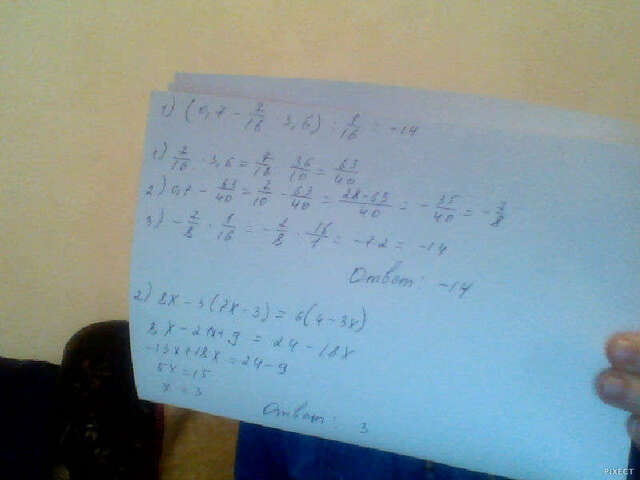 1) (0,7 - 7/16 · 3,6) : 1/16 = -14
1) 7/16 · 3,6 = 7/16 · 36/10 = 63/40
2) 0,7 - 63/40 = 7/10 - 63/40 = 28-63/40 = - 35/40 = - 7/8
3) - 7/8 : 1/16 = - 7/8 · 16/1 = -7·2 = -14
Ответ: -14
2) 8x - 3(7x-3) = 6(4-3x)
8x - 21x+9 = 24 - 18x
-13x+18x = 24-9
5x = 15
x = 3
Ответ: 3
PIXECT